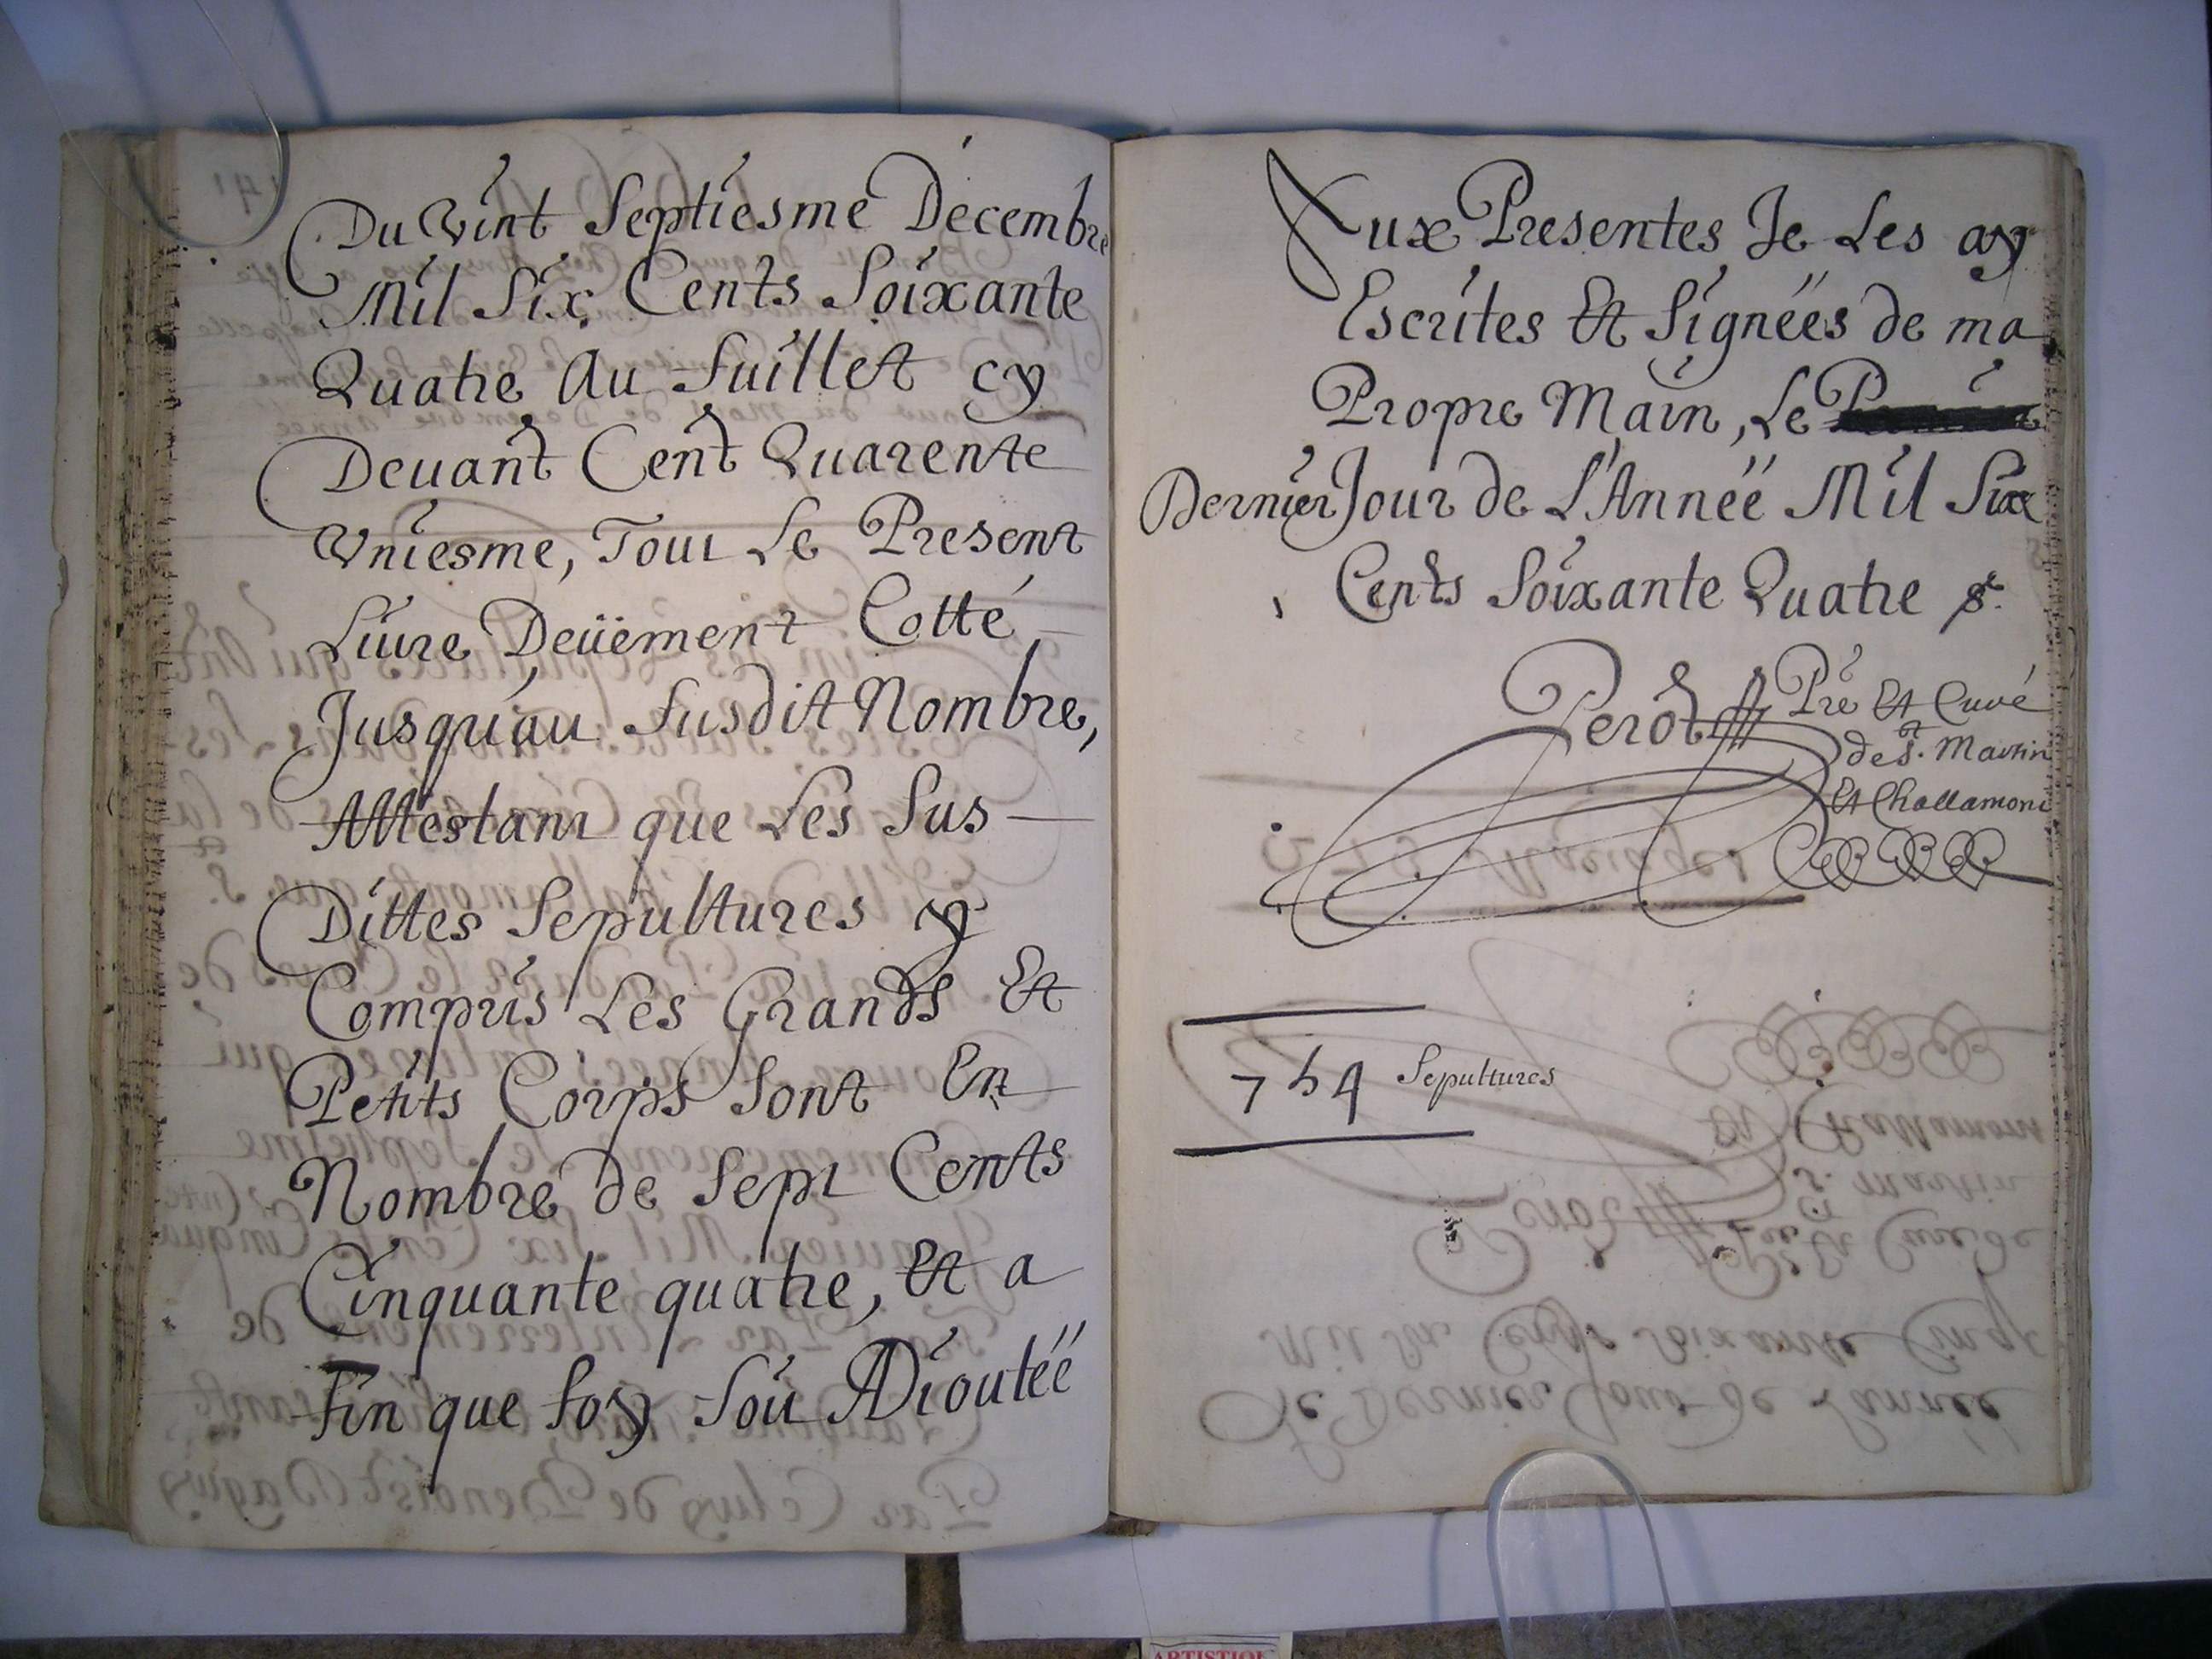 Du Vint Septiesme Decembre
Mil Six Cents Soixante
Quatre Au fuillet cy
Deuant Cent Quarente
Vniesme, Tout Le Present
Liure Deüement Cotté
Jusqu'au Susdit Nombre,
Attestant que Les Sus
Dittes Sepultures y
Compris Les Grands Et
Petits Corps Sont En
Nombre de Sept Cents
Cinquante quatre, Et a
Fin que foy Soit Adioutéé
Aux Presentes Je Les ay
Escrites Et Signéés de ma
Propre Main, Le
Dernier Jour de L'Annéé Mil Six
Cents Soixante Quatre
Perot Pre Et Curé
de St. Martin
Et Challamont
754 Sepultures